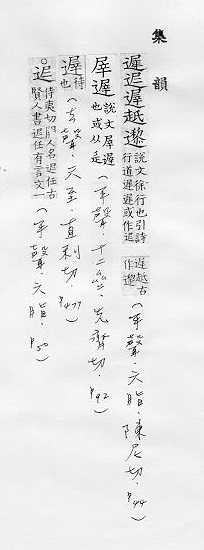 集韻
遲迡遟邌 說文徐行也引詩行道遲遲或作迡遟古作邌(平聲.六脂.陳尼切.P44)
屖遟 說文屖遟也或从辵(平聲.十二齊.先齊切.P92)
遲 待也(去聲.六至.直利切.P477)
。迡 侍夷切闕人名迡任古賢人書迡任有言文一(平聲.六脂.P50)